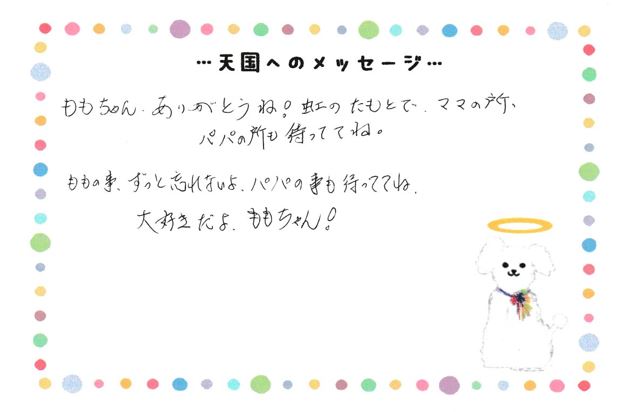 …天国へのメッセージ…
ももちゃん、ありがとうね！虹のたもとで、ママの所、
パパの所も待っててね。
ももの事、ずっと忘れないよ、パパの事も待っててね、
大好きだよ、ももちゃん！